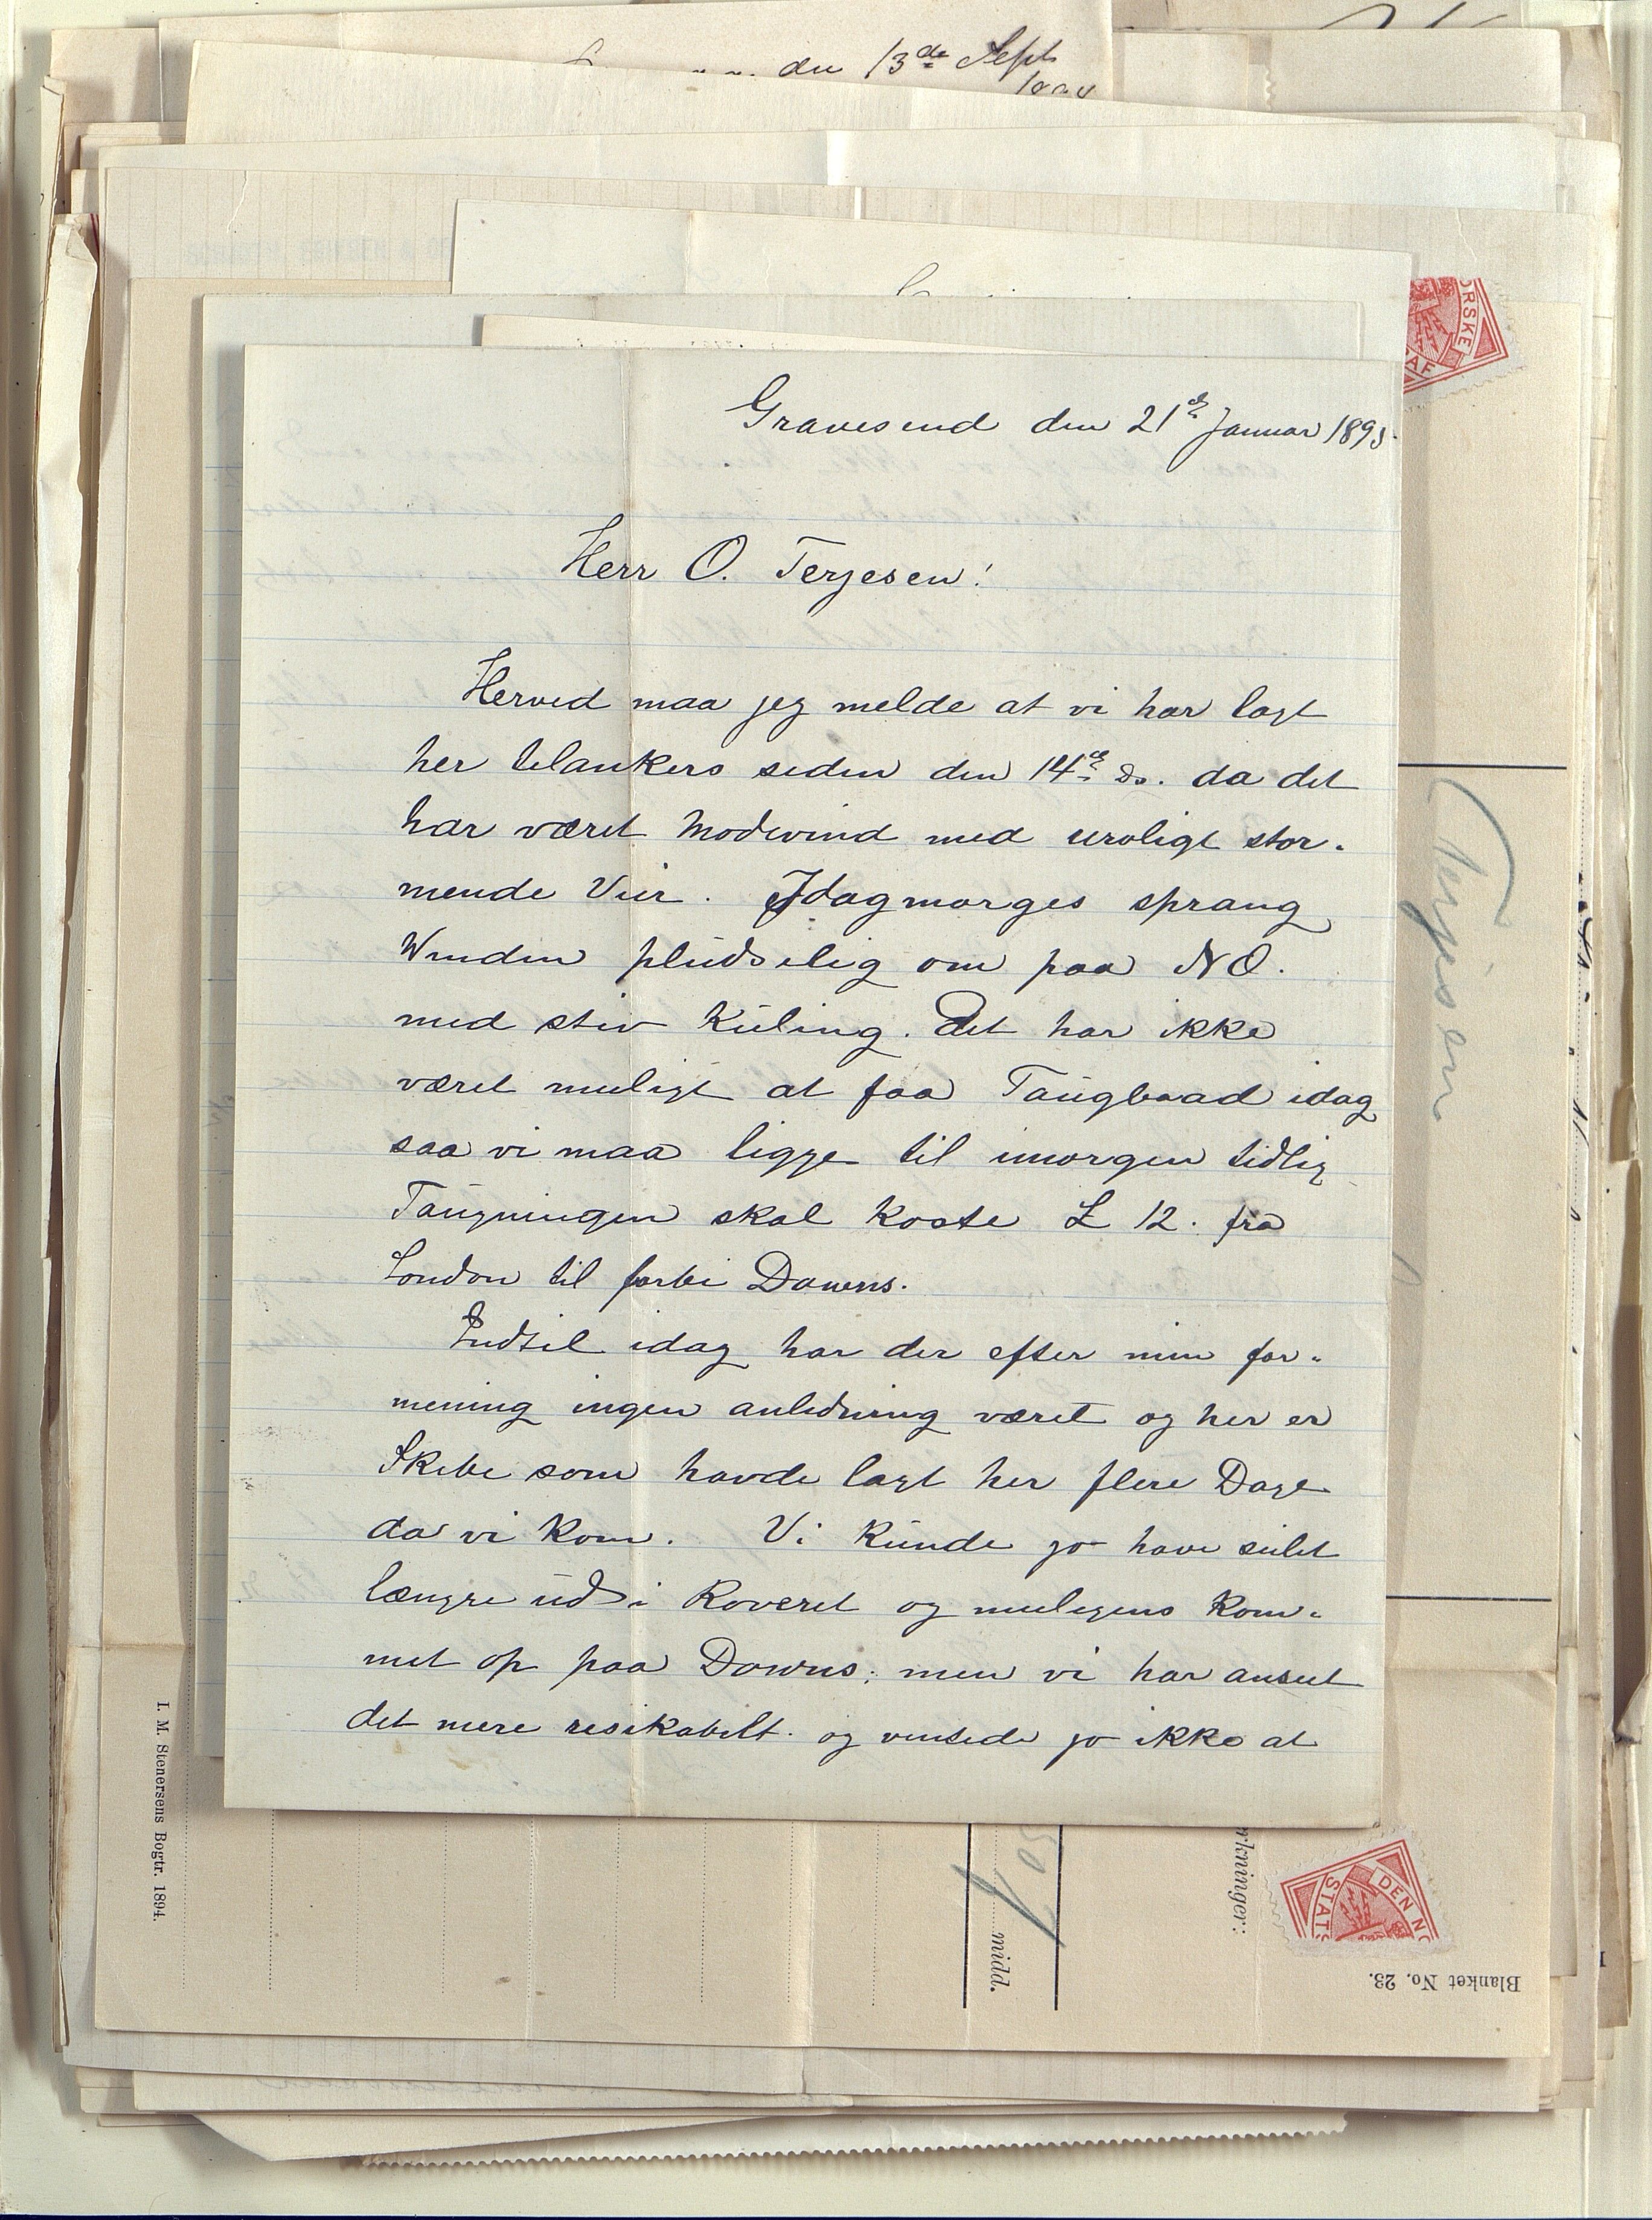 den 13de Sept
Gravesend den 21de Januar 1895.
Herr O. Terjesen!
Herved maa jeg melde at vi har lagt
her tilankers siden den 14de ds. da det
har været Modvind med uroligt stor-
mende Veir. Idagmorges sprang
Vinden pludselig om paa NO.
med stiv Kuling. Det har ikke
været muligt at faa Taugbaad idag
saa vi maa ligge til imorgen tidlig
Taugningen skal koste £ 12. fra
London til forbi Downs.
Indtil idag har der efter min for-
mening ingen anledning været og her er
Skibe som havde lagt her flere Dage
da vi kom. Vi kunde jo have seilet
længre ud i Reveret og muligens kom-
met op paa Downs; men vi har anseet
det mere resikabelt. og ventede jo ikke at
ORSKE
AF
Terjesen
I. M. Stenersens Bogtr. 1894.
midd.
rkninger:
DEN NO
STATS
Blanket No. 23.